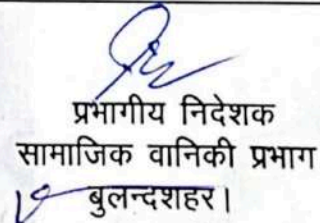 प्रभागीय निदेशक
सामाजिक वानिकी प्रभाग
बुलन्दशहर।